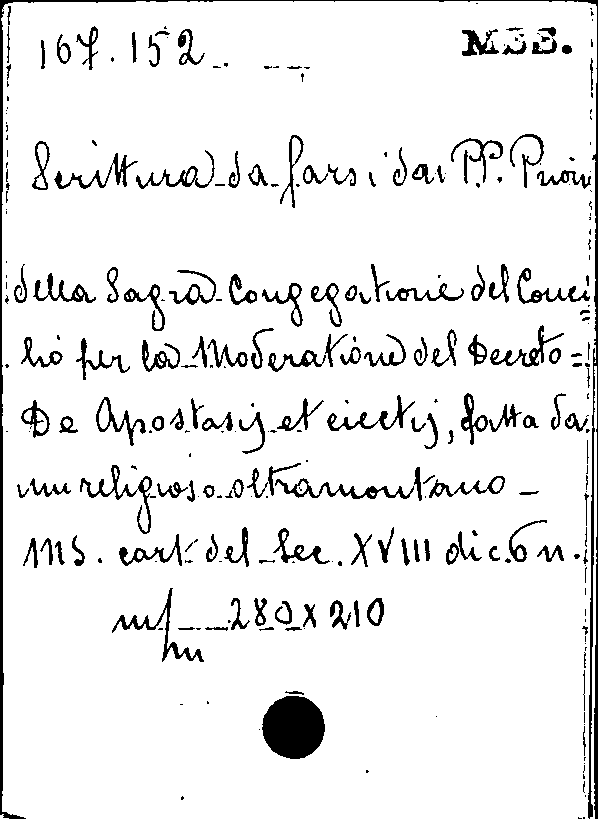 167.152. MSS.
Scrittura da farsi dai P.P. Prio
della Sagra Congegatione del Conci=
lio per la Moderatione del Decreto=
De Apostasij et eiectis, fatta da
un religioso oltramontano -
MS. cart. del Sec. XVIII di c. 6 n.
280 x 210